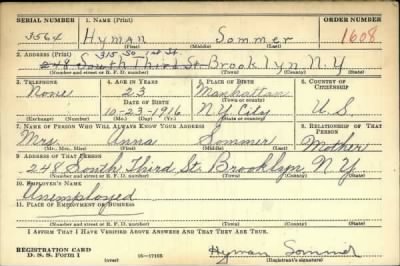 SERIAL NUMBER 1. NAME (Print) ORDER NUMBER
3564 Hyman Sommer 1608
(First) (Middle) (Last)
2. ADDRESS (Print)
315 So 1st St.
248 South Third St. Brooklyn, N.Y
(Number and street or R. F. D. number) (Town) (County) (State)
3. TELEPHONE 4. AGE IN YEARS 5. PLACE OF BIRTH 6. COUNTRY OF CITIZENSHIP
None 23 Manhattan
DATE OF BIRTH (Town or county)
10-23-1916 N.Y. City U.S.
(Exchange) (Number) (Mo.) (Day) (Yr.) (State or country)
7. NAME OF PERSON WHO WILL ALWAYS KNOW YOUR ADDRESS 8. RELATIONSHIP OF THAT PERSON
Mrs. Anna Sommer Mother
(Mr., Mrs., Miss) (First) (Middle) (Last)
9. ADDRESS OF THAT PERSON
248 South Third St. Brooklyn N.Y.
(Number and street or R. F. D. number) (Town) (County) (State)
10. EMPLOYER'S NAME
Unemployed
11. PLACE OF EMPLOYMENT OR BUSINESS
(Number and street or R. F. D. number) (Town) (County) (State)
I AFFIRM THAT I HAVE VERIFIED ABOVE ANSWERS AND THAT THEY ARE TRUE.
REGISTRATION CARD
D. S. S. FORM 1 (over) 16-17105 Hyman Sommer
(Registrant's signature)